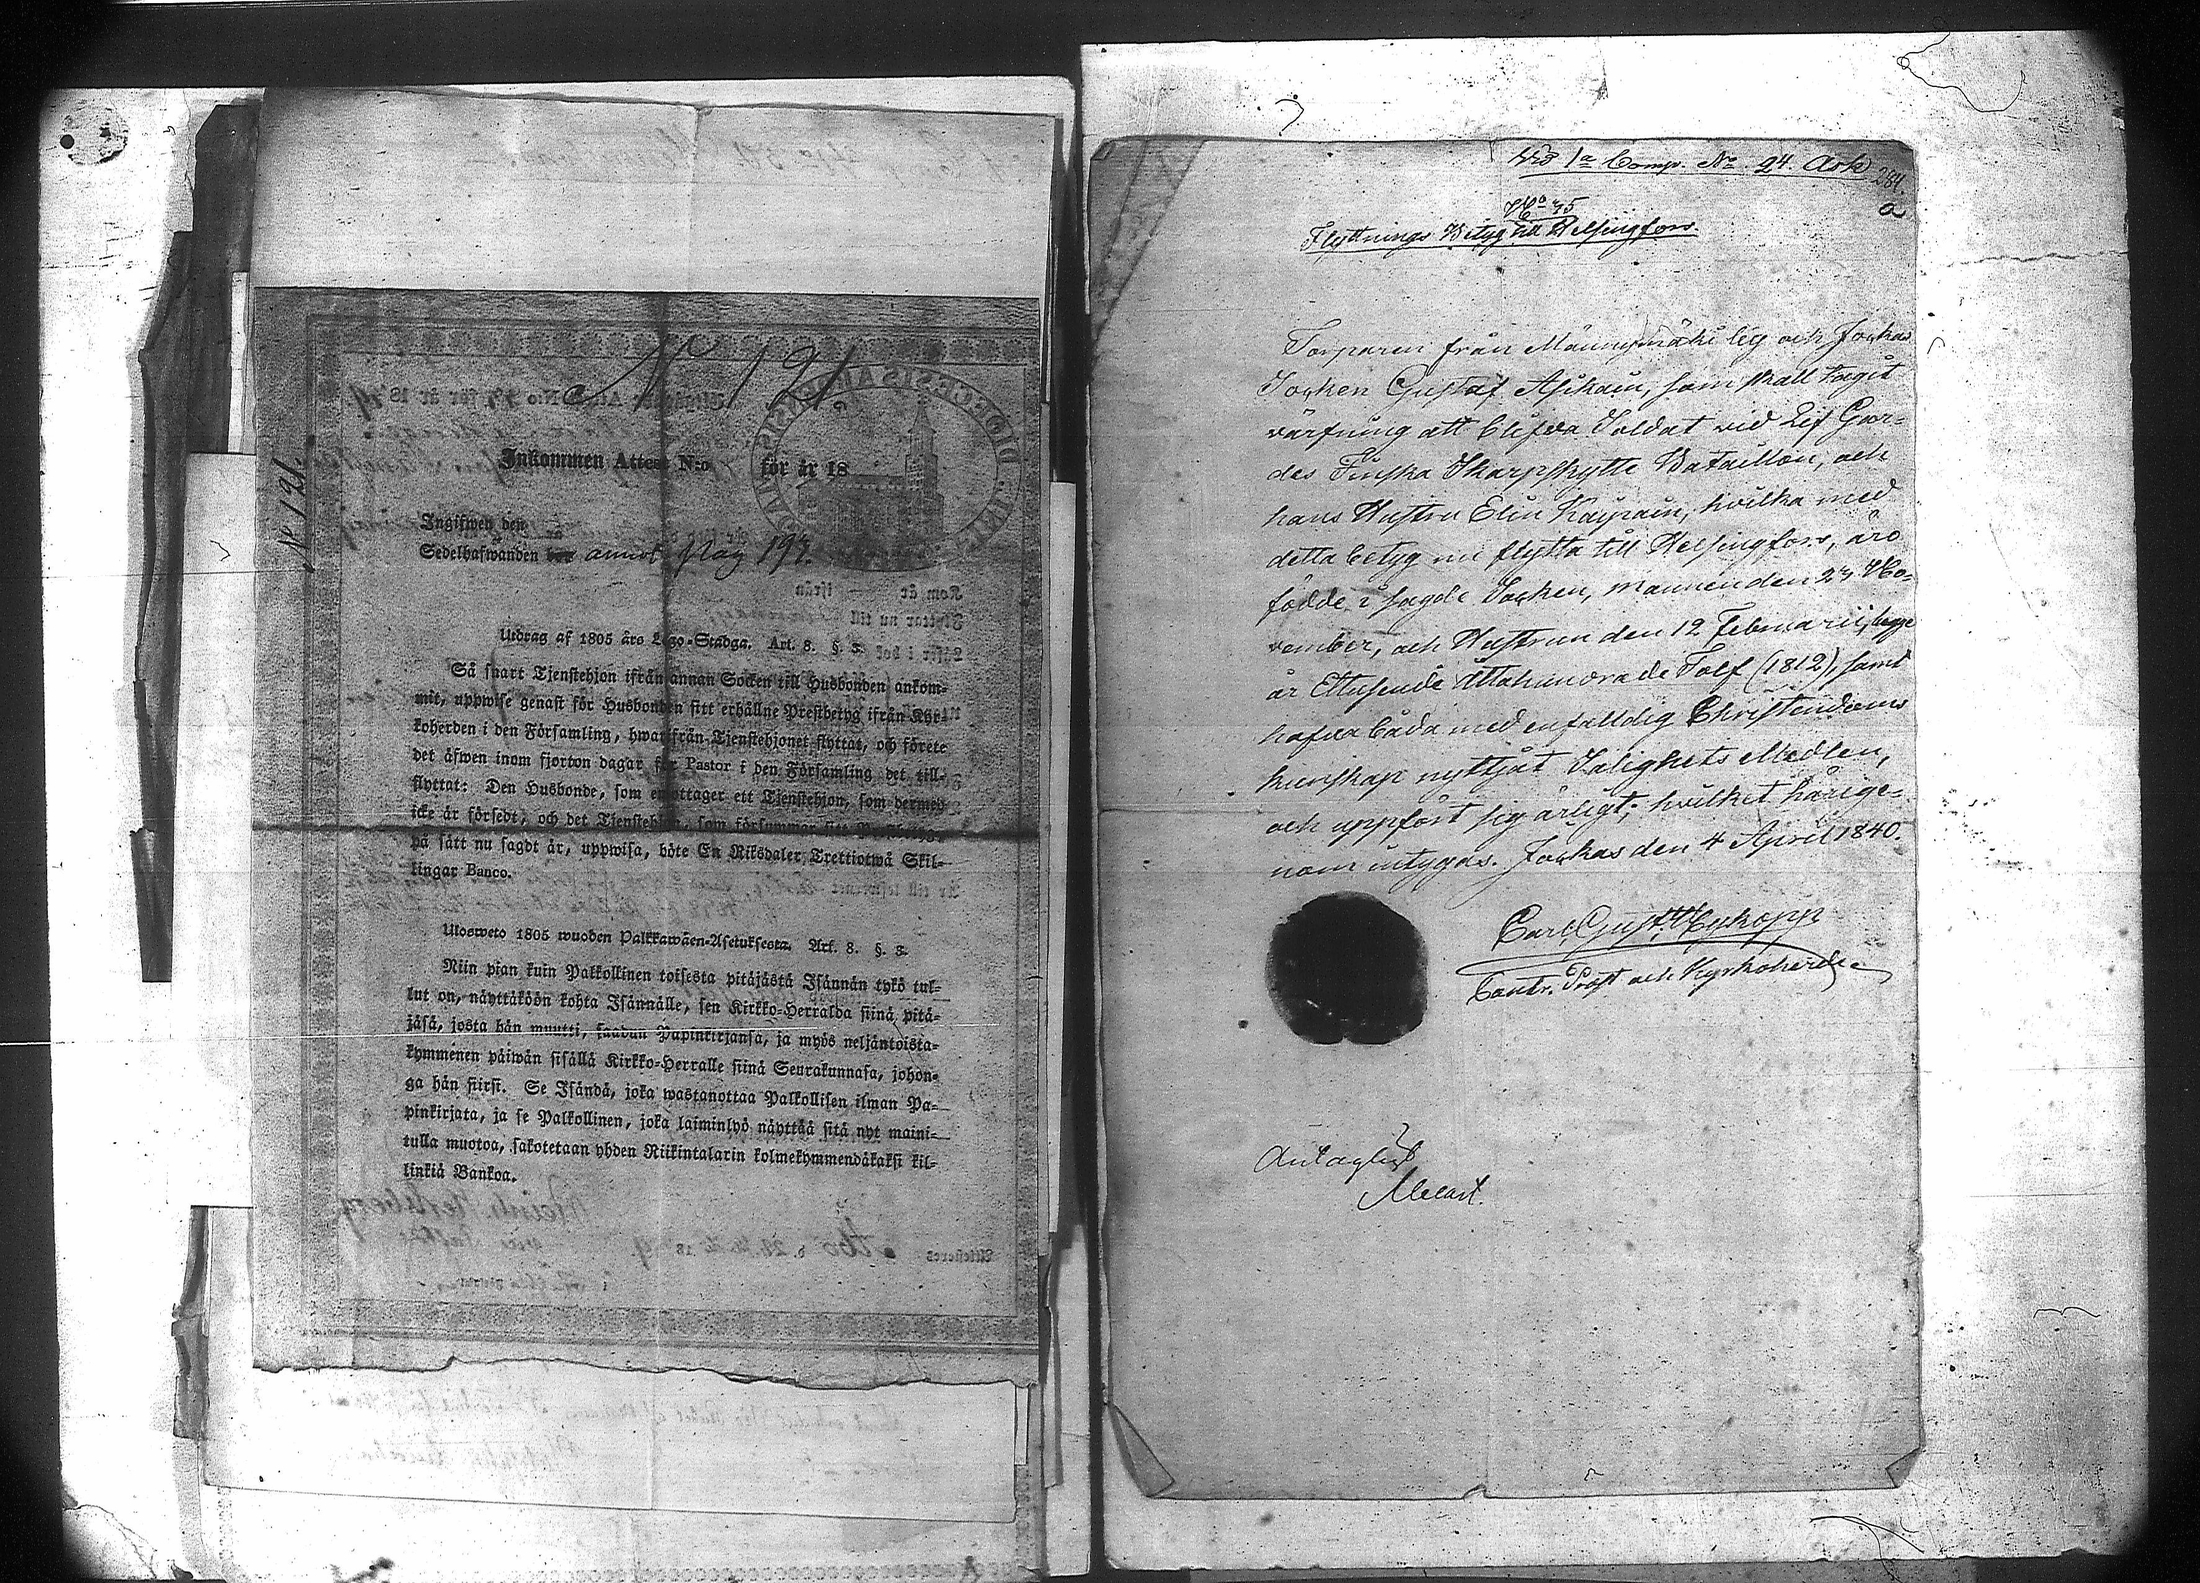 No 121
Inkommen Attest N:o för år 18
No 121.
Ingifwen den
Sedelhafwanden bor annot. pag 197.
Utdrag af 1805 års Lego-Stadga. Art. 8. §. 3.
Så snart Tjenstehjon ifrån annan Socken till Husbonden ankom-
mit, uppwise genast för Husbonden sitt erhållne Prestbetyg ifrån Kyr-
koherden i den Församling, hwarifrån Tjenstehjonet flyttat, och förete
det äfwen inom fjorton dagar för Pastor i den Församling det till-
flyttat: Den Husbonde, som emottager ett Tjenstehjon, som dermed
icke är försedt, och det Tjenstehjon, som försummar sitt
på sätt nu sagdt är, uppwisa, böte En Riksdaler Trettiotwå Skil-
lingar Banco.
Ulosweto 1805 wuoden Palkkawäen-Asetuksesta. Art. 8. §. 3.
Niin pian kuin Palkollinen toisesta pitäjästä Isännän tykö tul-
lut on, näyttäköön kohta Isännälle, sen Kirkko-Herralda siinä pitä-
jäsä, josta hän muutti, saadun Papinkirjansa, ja myös neljäntoista-
kymmenen päiwän sisällä Kirkko-Herralle siinä Seurakunnasa, johon-
ga hän siirsi. Se Isändä, joka wastanottaa Palkollisen ilman Pa-
pinkirjata, ja se Palkollinen, joka laiminlyö näyttää sitä nyt maini-
tulla muotoa, sakotetaan yhden Riikintalarin kolmekymmendäkaksi kil-
linkiä Bankoa.
DIOECESIS ABOENSIS
Wid 1a Comp. No 24. Ask 284.
a
No 75
Flyttnings Betyg till Helsingfors.
Torparen från Männynmäki by och Jockas
Socken Gustaf Asikain, som skall tagit
värfning att blifva Soldat vid Lif Gar-
des Finska Skarpskytte Bataillon, och
hans Hustru Elin Käyräin, hvilka med
detta betyg nu flytta till Helsingfors, äro
födde i sagde Socken, mannen den 27 No-
vember, och Hustrun den 12 Februarii, begge
år Ettusende åttahundrade Tolf (1812), samt
hafva båda med enfalldig Christendoms
kunskap nyttjat Salighets Medlen,
och uppfört sig ärligt; hvilket härige-
nom intygas. Jockas den 4 April 1840.
Carl Gust. Nykopp
Contr. Prost och Kyrkoherde
Antaglig